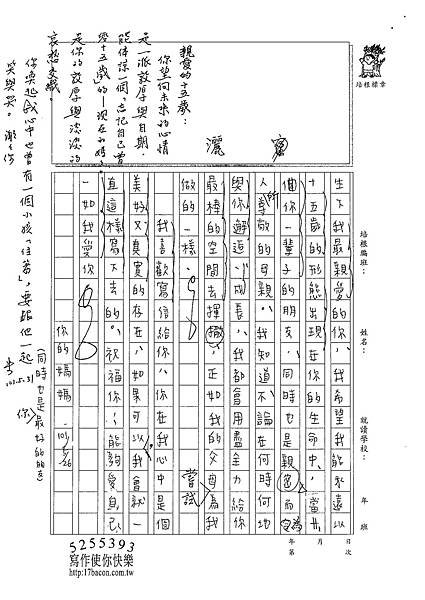 培根標章
培根編班：
姓名：
就讀學校：
年
班
年
月
日
第
次
生下我最親愛的你，我希望我能永遠以
十五歲的形態出現在你的生命中，當
個你一輩子的朋友，同時也是親密而
人所尊敬的母親。我知道不論在何時何地
與你邂逅、成長，我都會用盡全力給你
最棒的空間去揮撒，正如我的父母為我
嘗試
做的一樣。
我喜歡寫信給你，在我心中是個
美好又真實的存在，如果可以我會就一
直這樣寫下去的，祝福你，能夠愛自己
一如我愛你。
你的媽媽
101.5/26
親愛的十五歲：
你望向未來的心情
是一派敦厚與自期，
是你的敦厚與淡淡的
哀愁交織。
你喚起我心中也曾有一個小孩「住著」，要跟他一起
笑與哭。謝謝你
101.5.31
5255393
寫作使你快樂
http://17bacon.com.tw